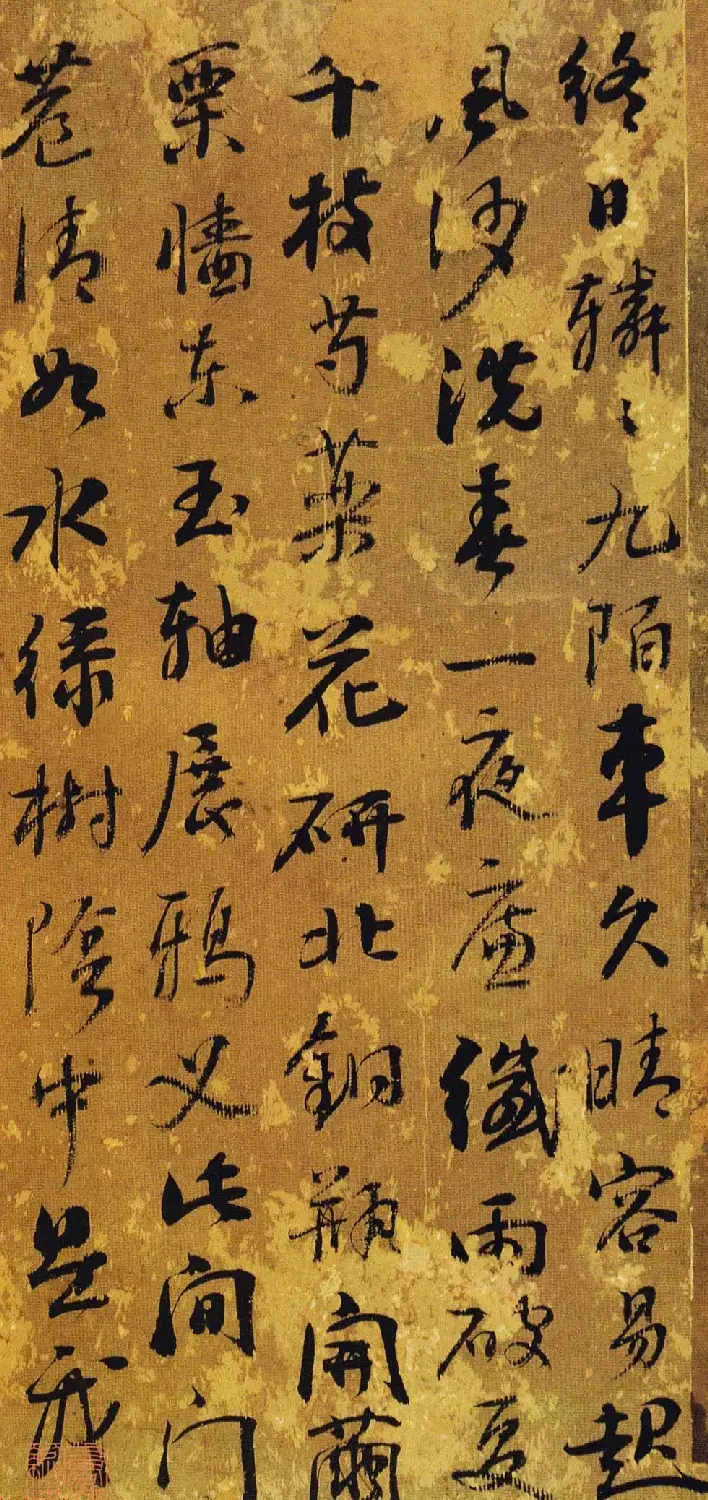 終日轔〻九陌車久晴容易起
風沙洗春一夜廉纖雨破
千枝芍藥花研北銅瓶開繭
栗牆東玉軸展鴉叉此間門
巷清如水綠樹陰中是我